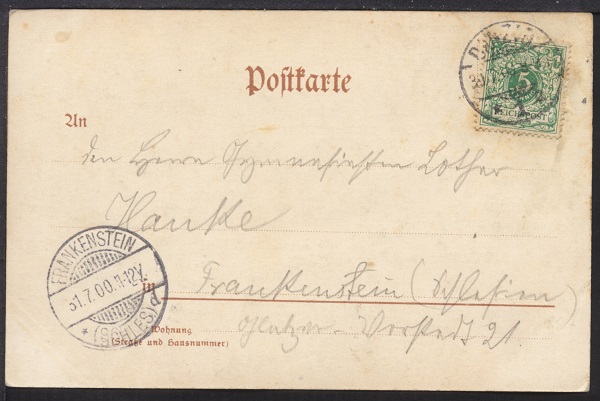 Postkarte
DANZIG
5
REICHSPOST
An
den Herrn Gymnasiasten Lothar
Hanke
FRANKENSTEIN
31.7.00.11-12V.
* (SCHLES)
in
Frankenstein (Schlesien)
Wohnung
(Straße und Hausnummer)
Glatzer-Vorstadt 21.